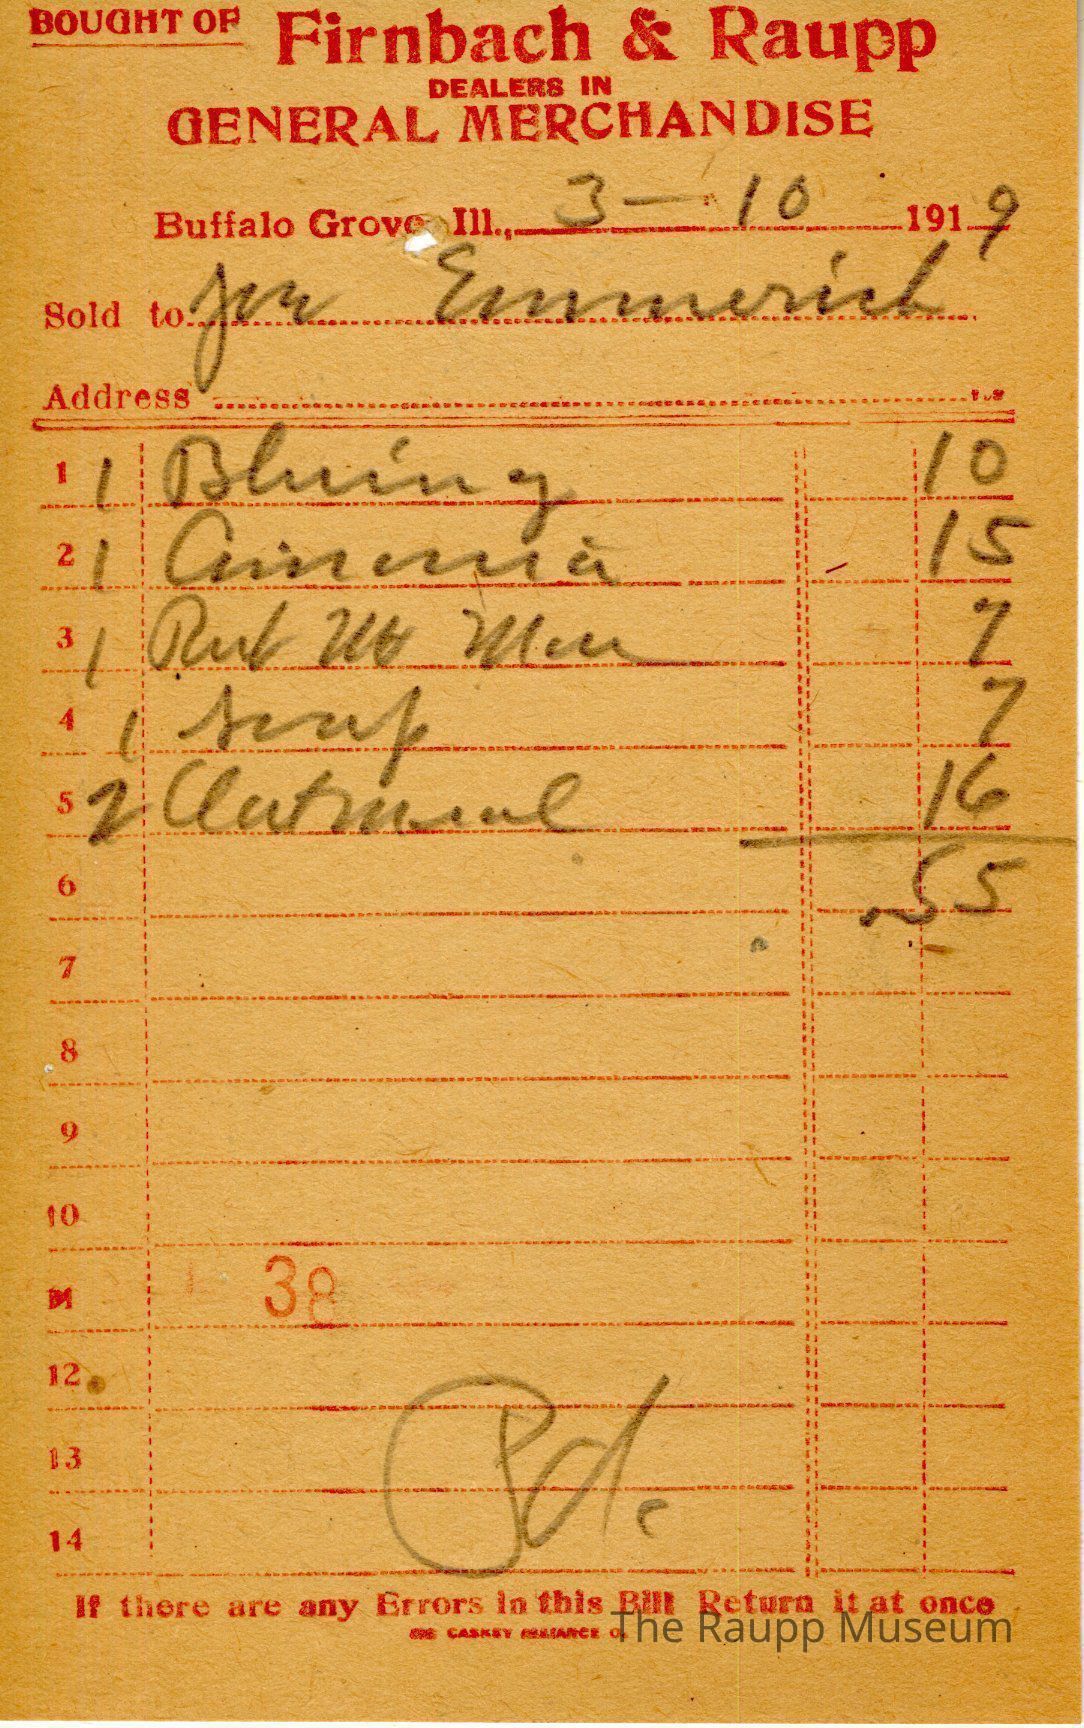 BOUGHT OF Firnbach & Raupp
DEALERS IN
GENERAL MERCHANDISE
Buffalo Grove, Ill., 3 — 10 1919
Sold to Joe Emmerich
Address
1 1 Bluing 10
2 1 Amonia 15
3 1 7
4 1 Soap 7
5 2 Oatmeal 16
6 .55
7
8
9
10
11
38
12
13
Pd.
14
If there are any Errors in this Bill Return it at once
The Raupp Museum